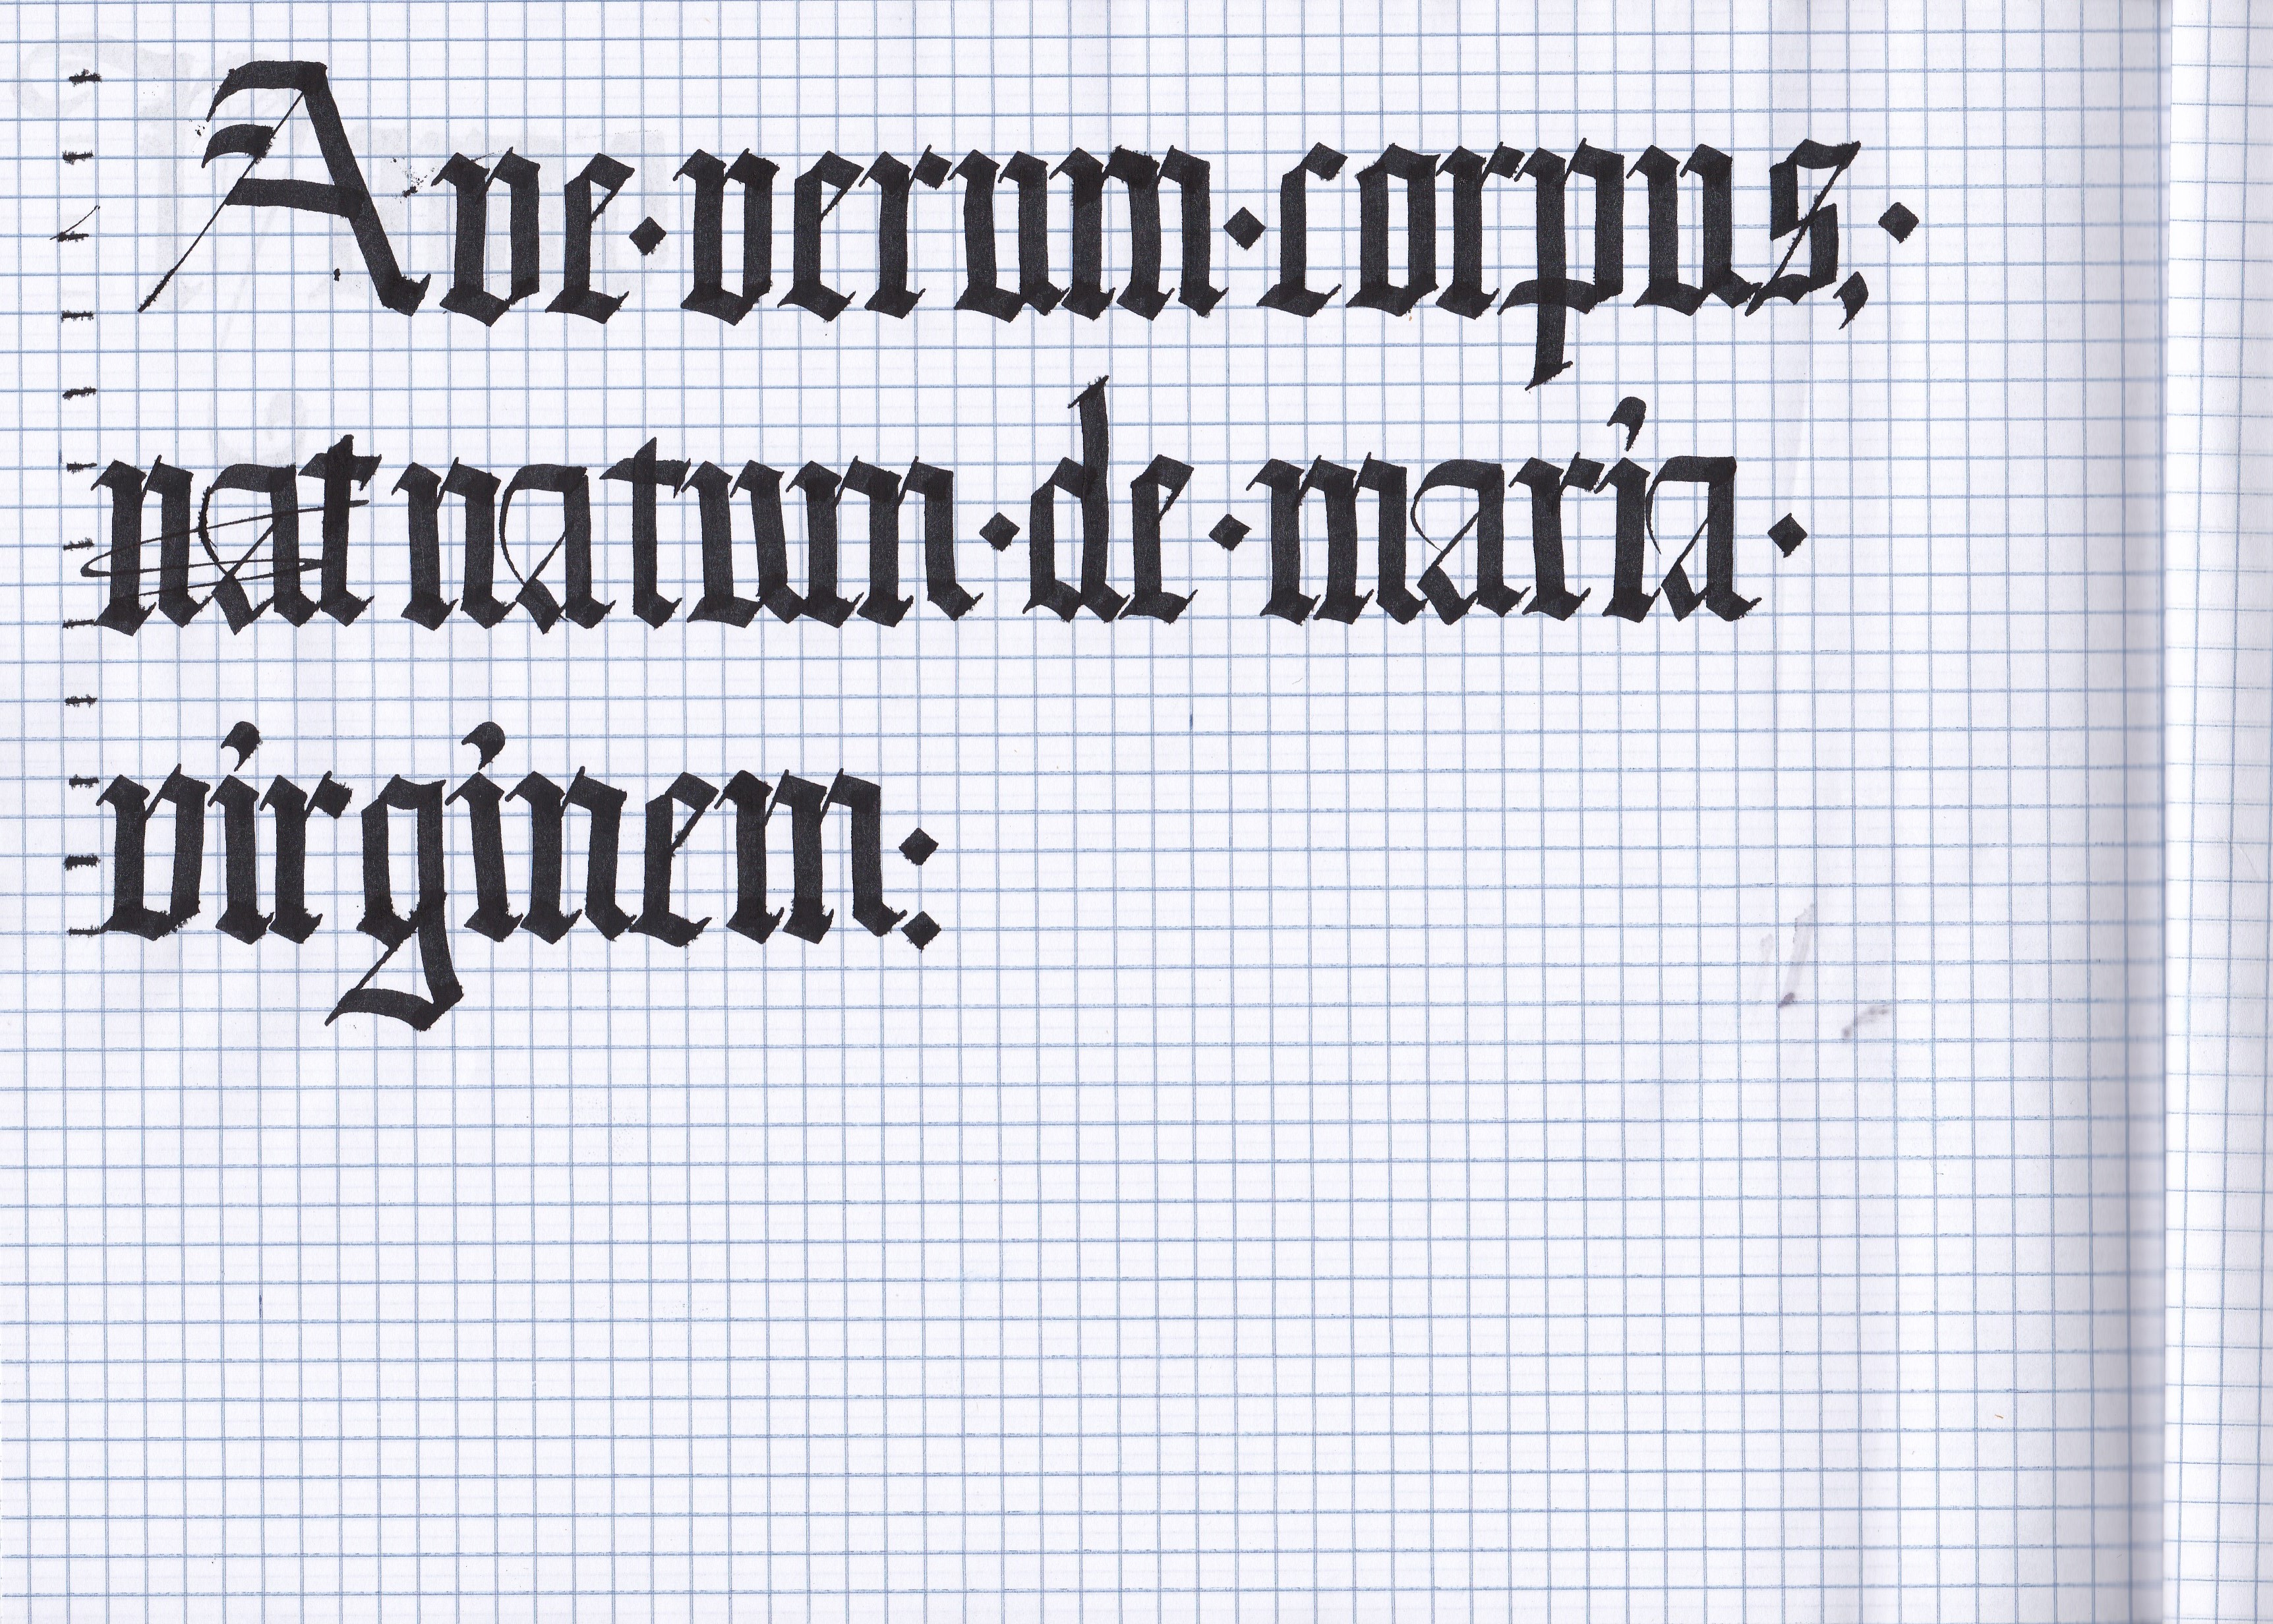 Ave·verum·corpus,·
nat natum·de·maria·
virginem: